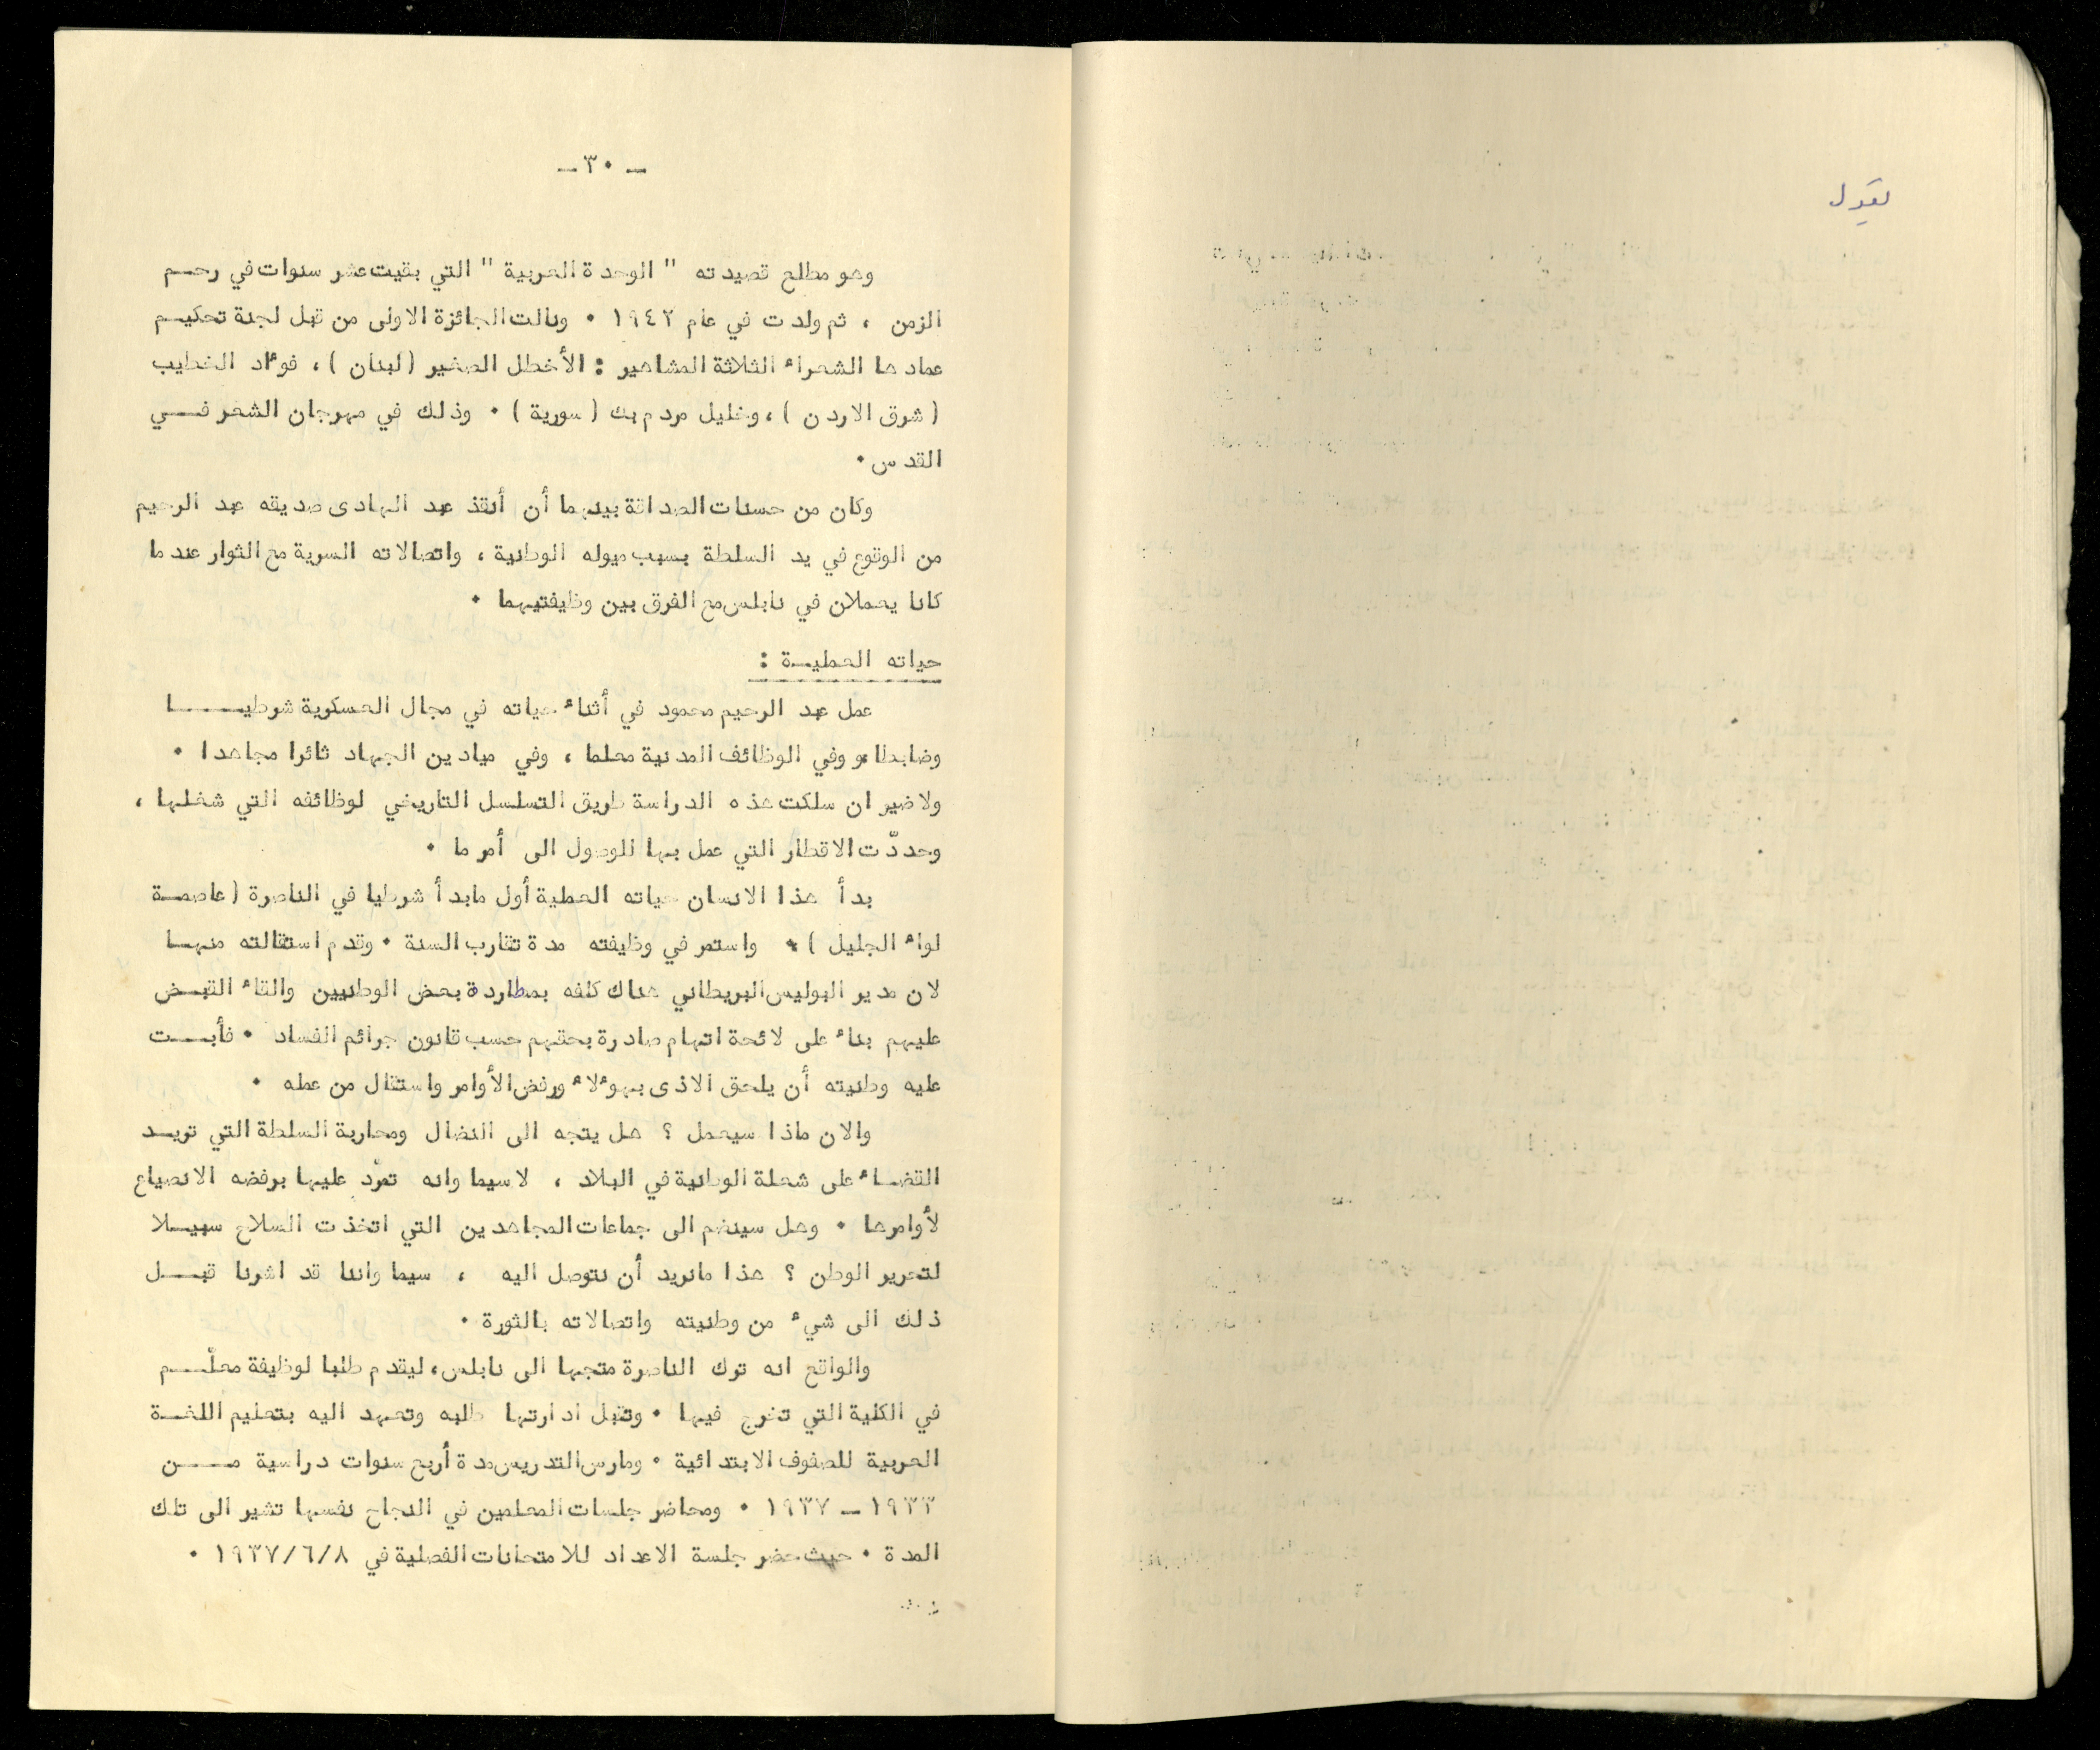 يقول
ـ ٣٠ ـ
وهو مطلع قصيدته " الوحدة العربية " التي بقيت عشر سنوات في رحـم
الزمن ، ثم ولدت في عام ١٩٤٢ ٠ ونالت الجائزة الاولى من قبل لجنة تحكيـم
عمادها الشعراء الثلاثة المشاهير : الأخطل الصغير ( لبنان ) ، فوءاد الخطيب
( شرق الاردن ) ، وخليل مردم بك ( سورية ) ٠ وذلك في مهرجان الشعر فـــي
القدس ٠
وكان من حسنات الصداقة بينهما أن أنقذ عبد الهادى صديقه عبد الرحيم
من الوقوع في يد السلطة بسبب ميوله الوطنية ، واتصالاته السرية مع الثوار عندما
كانا يعملان في نابلس مع الفرق بين وظيفتيهما ٠
حياته العمليـة :
عمل عبد الرحيم محمود في أثناء حياته في مجال العسكرية شرطيـــــا
وضابطا ، وفي الوظائف المدنية معلما ، وفي ميادين الجهاد ثائرا مجاهدا ٠
ولا ضير ان سلكت هذه الدراسة طريق التسلسل التاريخي لوظائفه التي شغلها ،
وحددّت الاقطار التي عمل بها للوصول الى أمر ما ٠
بدأ هذا الانسان حياته العملية أول مابدأ شرطيا في الناصرة ( عاصمـة
لواء الجليل ) ٠ واستمر في وظيفته مدة تقارب السنة ٠ وقدم استقالته منهـا
لان مدير البوليس البريطاني هناك كلفه بمطاردة بعض الوطنيين والقاء القبـض
عليهم بناء على لائحة اتهام صادرة بحقهم حسب قانون جرائم الفساد ٠ فأبــت
عليه وطنيته أن يلحق الاذى بهوءلاء ورفض الأوامر واستقال من عمله ٠
والان ماذا سيعمل ؟ هل يتجه الى النضال ومحاربة السلطة التي تريـد
القضـاء على شعلة الوطنية في البلاد ، لاسيما وانه تمرّد عليها برفضه الانصياع
لأوامرها ٠ وهل سينضم الى جماعات المجاهدين التي اتخذت السلاح سبيـلا
لتحرير الوطن ؟ هذا مانريد أن نتوصل اليه ، سيما واننا قد اشرنا قبــل
ذلك الى شيء من وطنيته واتصالاته بالثورة ٠
والواقع انه ترك الناصرة متجها الى نابلس ، ليقدم طلبا لوظيفة معلّـــم
في الكلية التي تخرج فيها ٠ وتقبل ادارتها طلبه وتعهد اليه بتعليم اللغـة
العربية للصفوف الابتدائية ٠ ومارس التدريس مدة أربع سنوات دراسية مــــن
١٩٣٣ ـ ١٩٣٧ ٠ ومحاضر جلسات المعلمين في النجاح نفسها تشير الى تلك
المدة ٠ حيث حضر جلسة الاعداد للامتحانات الفصلية في ١٩٣٧/٦/٨ ٠